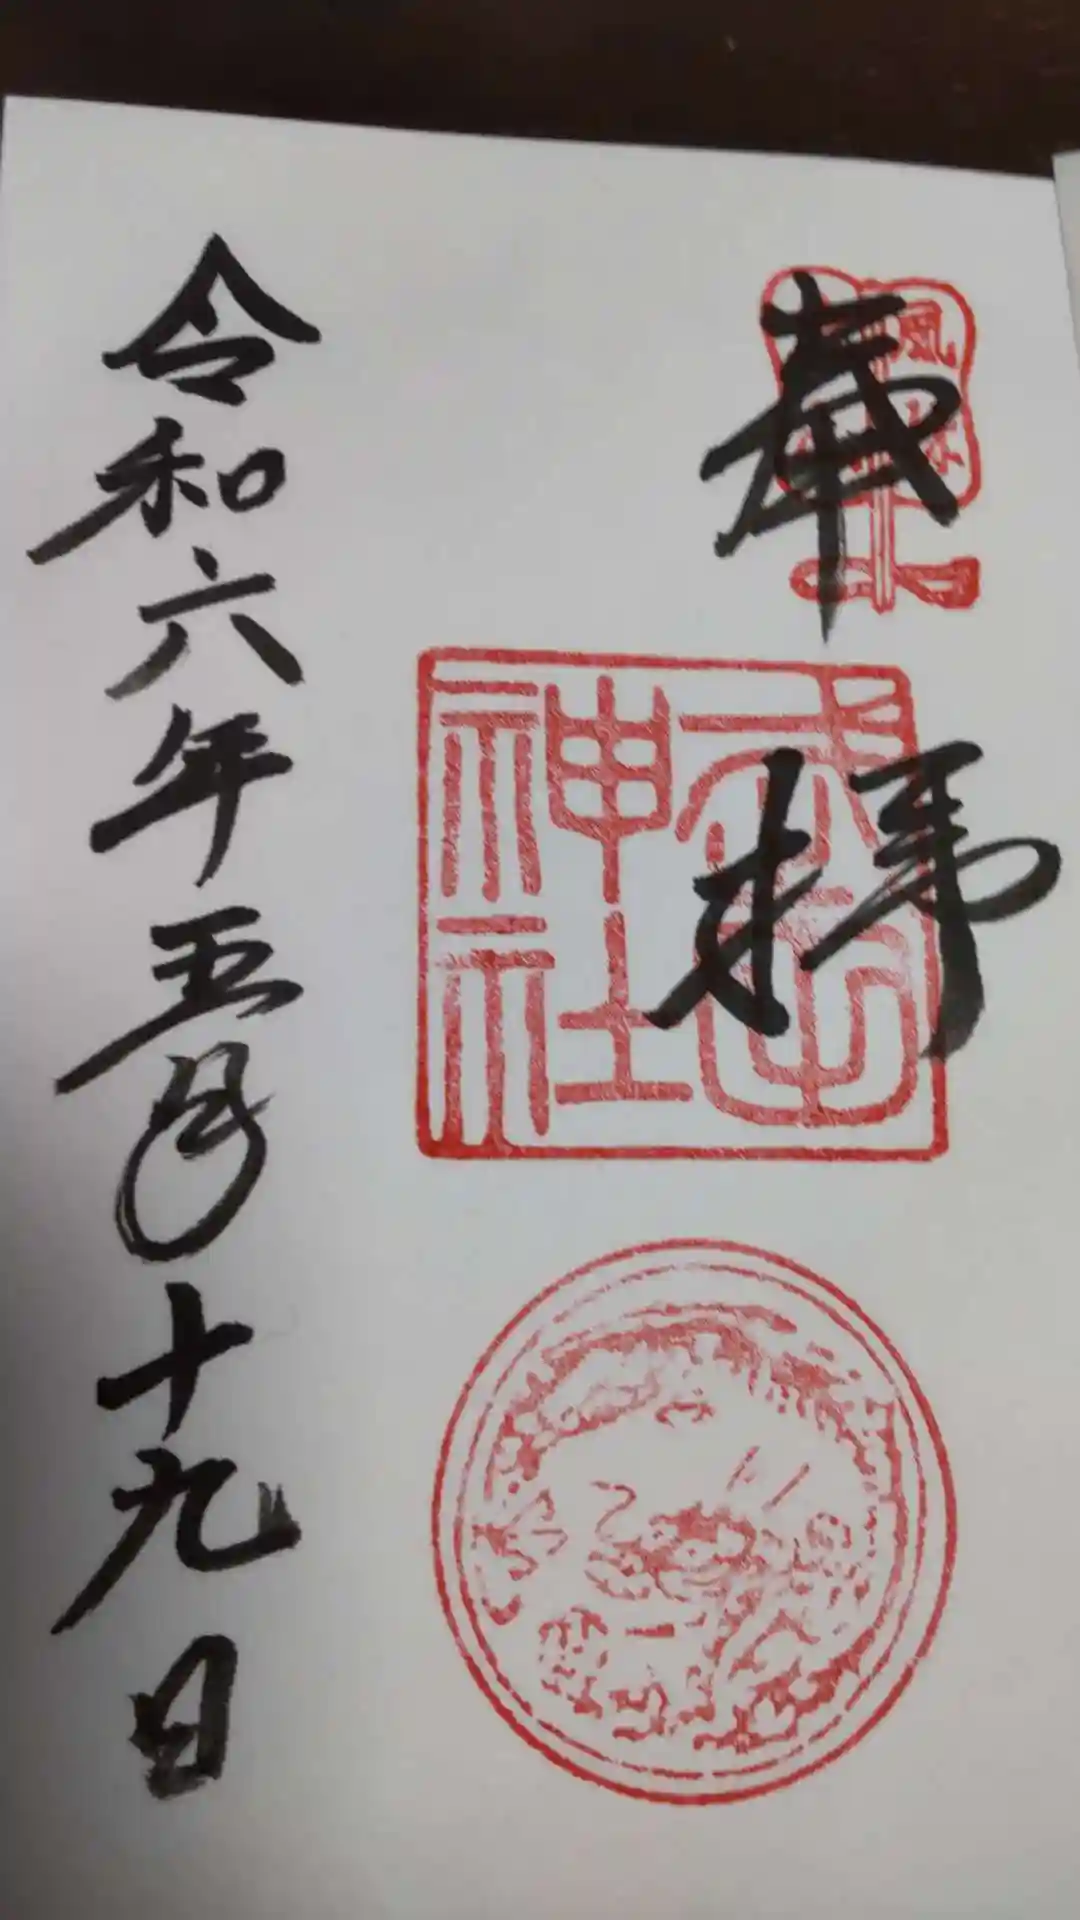 奉拝
風林
武田
神社
令和六年五月十九日